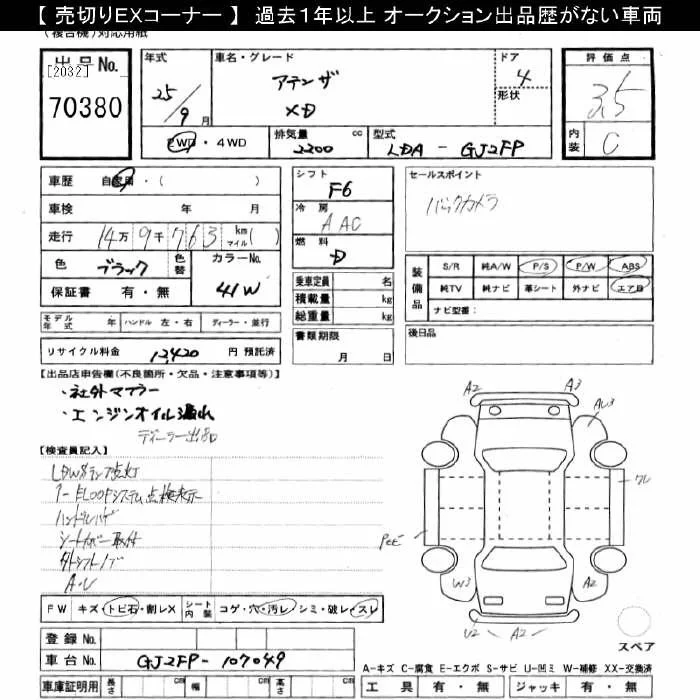 【 売切りEXコーナー 】 過去1年以上 オークション出品歴がない車両
(複合機)対応用紙
出品No.
[2032]
70380
年式
25/9月
車名・グレード
アテンザ
XD
ドア
4
形状
評価点
3.5
内装
C
2WD・4WD
排気量 cc
2200
型式
LDA - GJ2FP
車歴 自家用・( )
車検 年 月
走行 14万9千763 km マイル( )
色 ブラック 色替
カラーNo.
41W
保証書 有・無
シフト
F6
冷房
AAC
燃料
D
乗車定員 名
積載量 kg
総重量 kg
書類期限
月 日
セールスポイント
バックカメラ
装備品
S/R 純A/W P/S P/W ABS
純TV 純ナビ 革シート 外ナビ エアB
ナビ型番:
後日品
モデル年式 年 ハンドル 左・右 ディーラー・並行
リサイクル料金 12,420 円 預託済
【出品店申告欄(不良箇所・欠品・注意事項等)】
・社外マフラー
・エンジンオイル漏れ
ディーラー出品
【検査員記入】
LDWSランプ点灯
i-ELOOPシステム点検表示
ハンドルハゲ
シートカバー取付
外シフトノブ
A・U
FW キズ・トビ石・割レX シート内装 コゲ・穴・汚レ・シミ・破レ・スレ
登録No.
車台No. GJ2FP-107049
車庫証明用 長さ cm 幅 cm 高さ cm
A2
A3
AU3
ワレ
PCE
W3
A2
U2
A2
スペア
A-キズ C-腐食 E-エクボ S-サビ U-凹ミ W-補修 XX-交換済
工具 有・無 ジャッキ 有・無